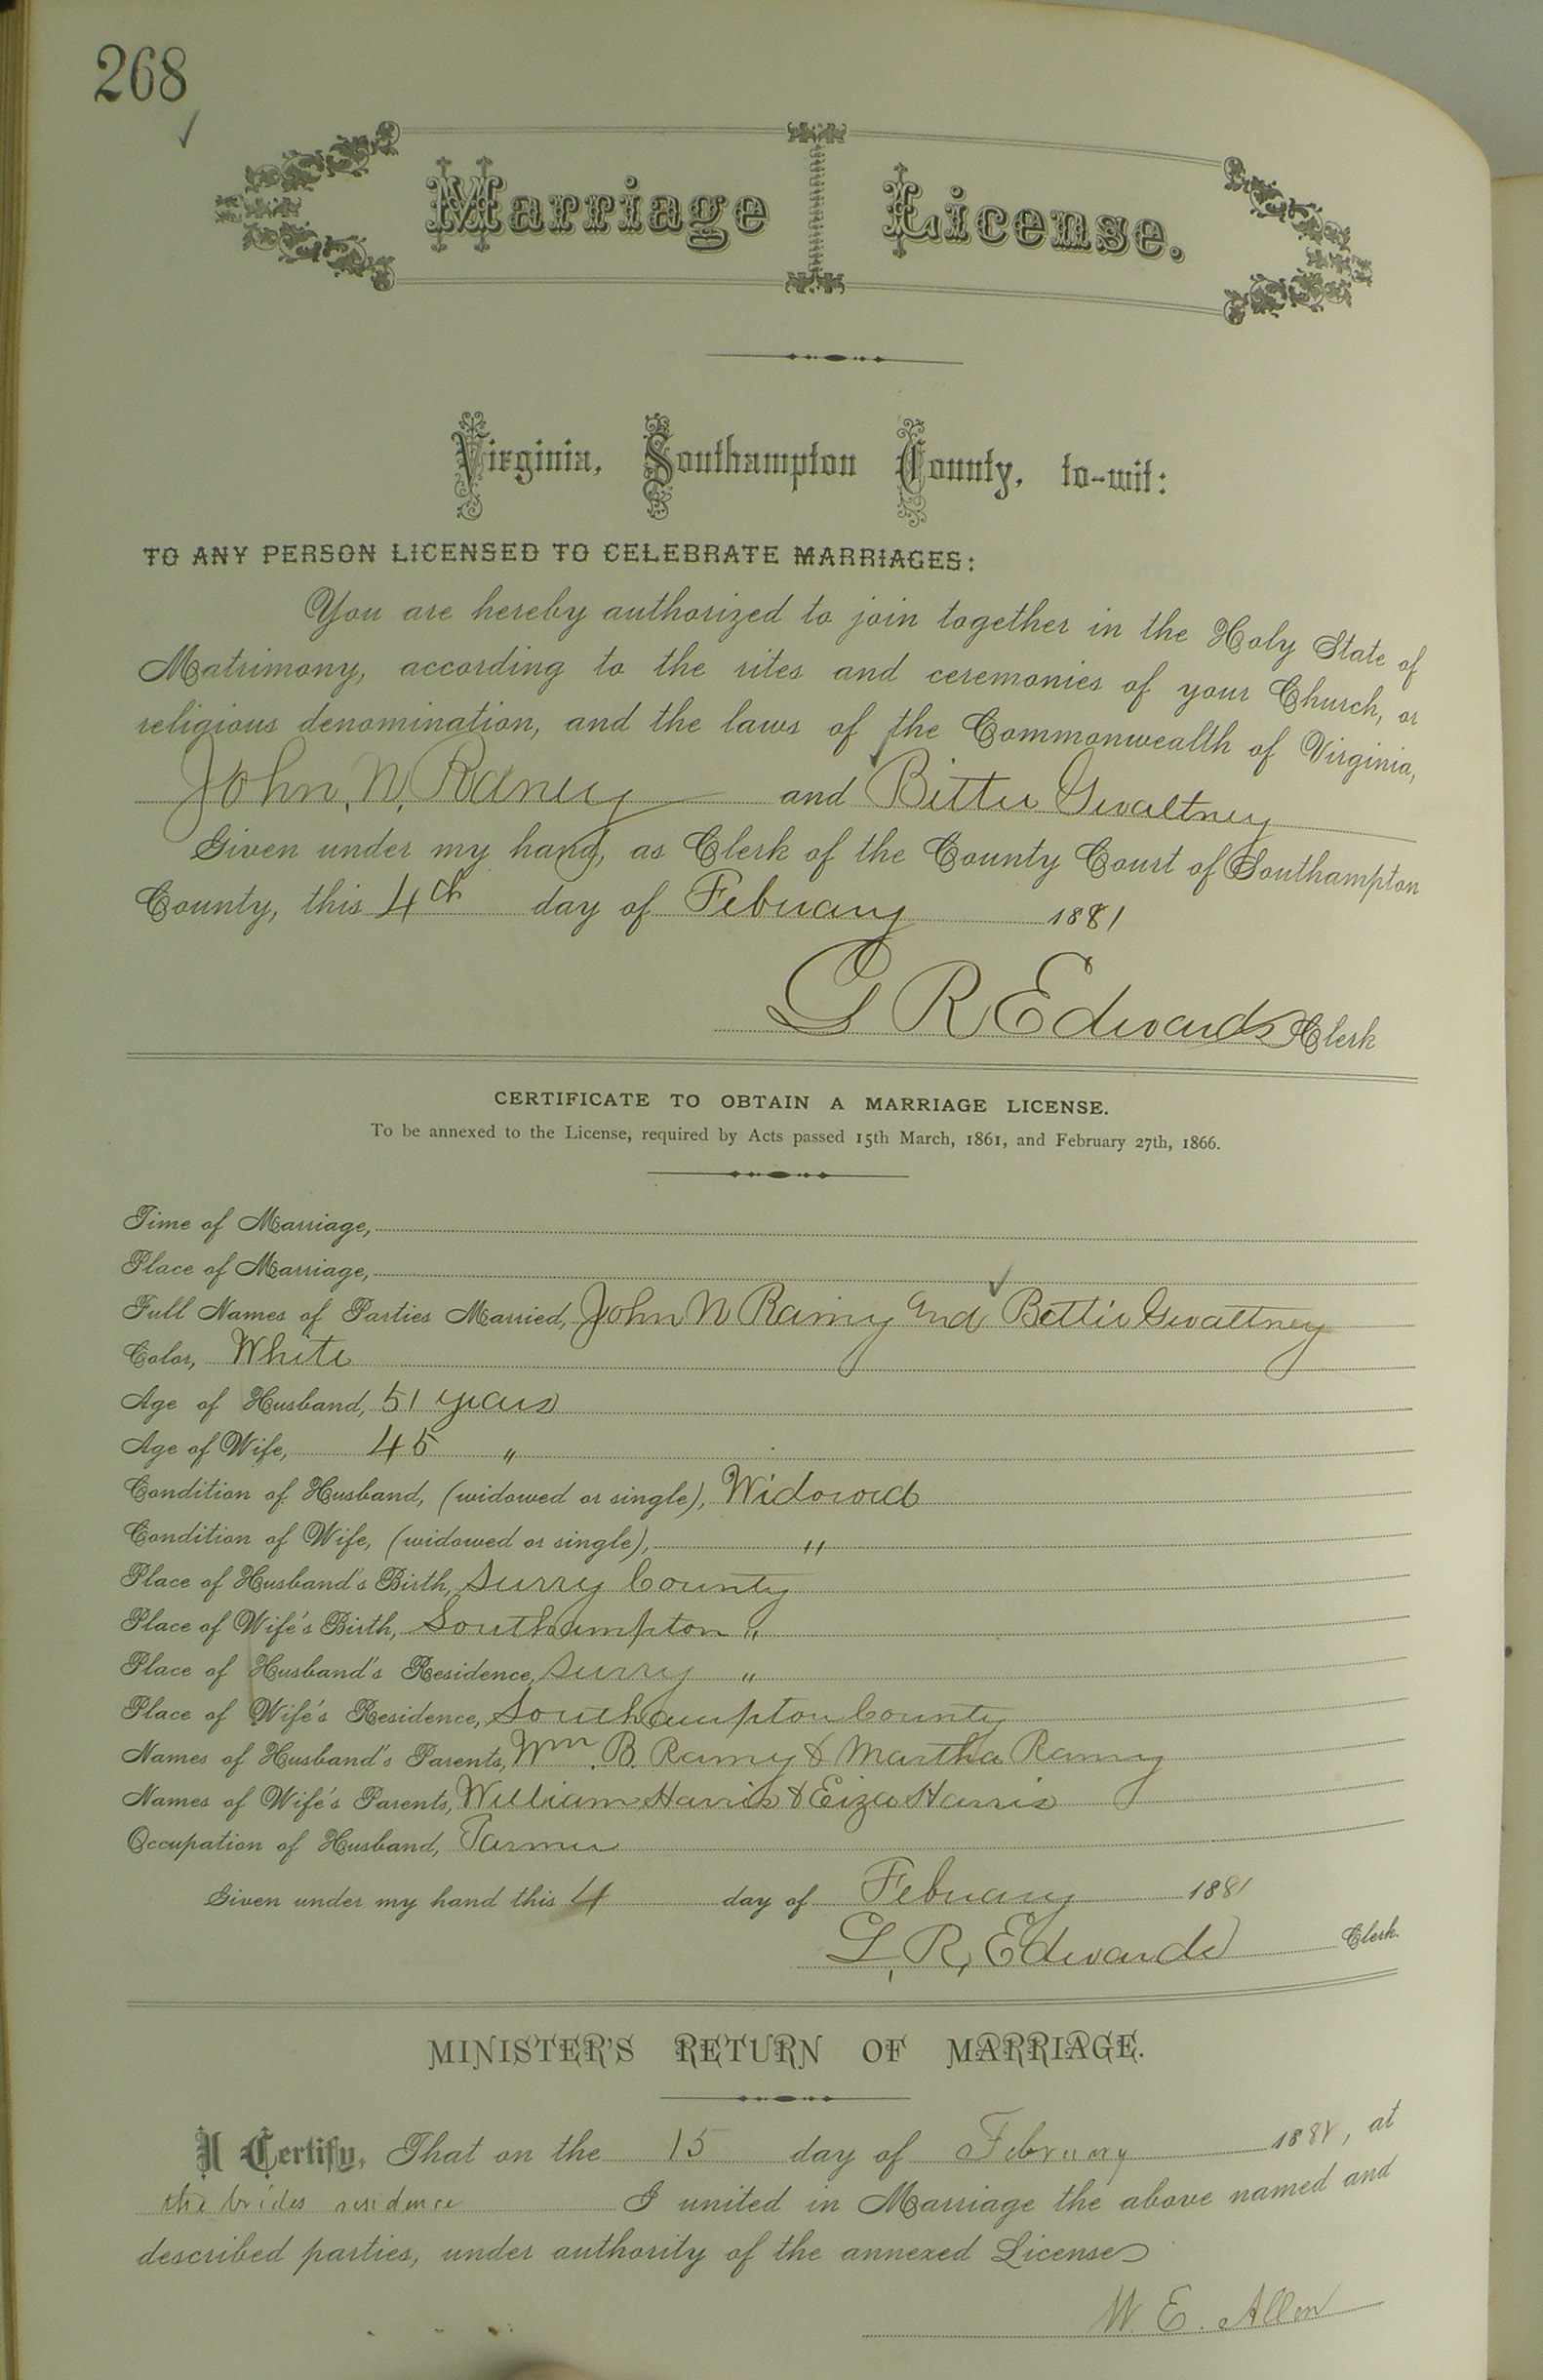 268
Marriage License.
Virginia, Southampton County, to-wit:
TO ANY PERSON LICENSED TO CELEBRATE MARRIAGES:
You are hereby authorized to join together in the Holy State of
Matrimony, according to the rites and ceremonies of your Church, or
religious denomination, and the laws of the Commonwealth of Virginia,
John. N. Raney and Bettie Gwaltney
Given under my hand, as Clerk of the County Court of Southampton
County, this 4th day of February 1881
L R Edwards Clerk
CERTIFICATE TO OBTAIN A MARRIAGE LICENSE.
To be annexed to the License, required by Acts passed 15th March, 1861, and February 27th, 1866.
Time of Marriage,
Place of Marriage,
Full Names of Parties Married, John N Rainy and Bettie Gwaltney
Color, White
Age of Husband, 51 years
Age of Wife, 45 "
Condition of Husband, (widowed or single), Widowed
Condition of Wife, (widowed or single), "
Place of Husband's Birth, Surry County
Place of Wife's Birth, Southampton "
Place of Husband's Residence, Surry "
Place of Wife's Residence, Southampton County
Names of Husband's Parents, Wm. B. Ramy & Martha Ramy
Names of Wife's Parents, William Harris & Eiza Harris
Occupation of Husband, Farmer
Given under my hand this 4 day of February 1881
L. R. Edwards Clerk.
MINISTER'S RETURN OF MARRIAGE.
I Certify, That on the 15 day of February 188, at
the brides residence I united in Marriage the above named and
described parties, under authority of the annexed License
W. E. Allen